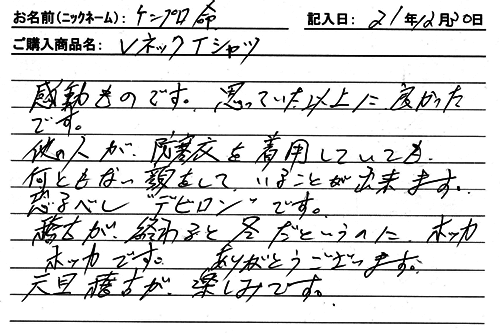 お名前(ニックネーム): ケンプロ命 記入日: 21年12月30日
ご購入商品名: VネックTシャツ
感動ものです。思っていた以上に良かった
です。
他の人が、防寒衣を着用していても、
何ともない顔をして、いることが出来ます。
恐るべし"デビロン"です。
稽古が、終わると冬だというのに、ホッカ
ホッカです。 ありがとうございます。
元旦稽古が、楽しみです。